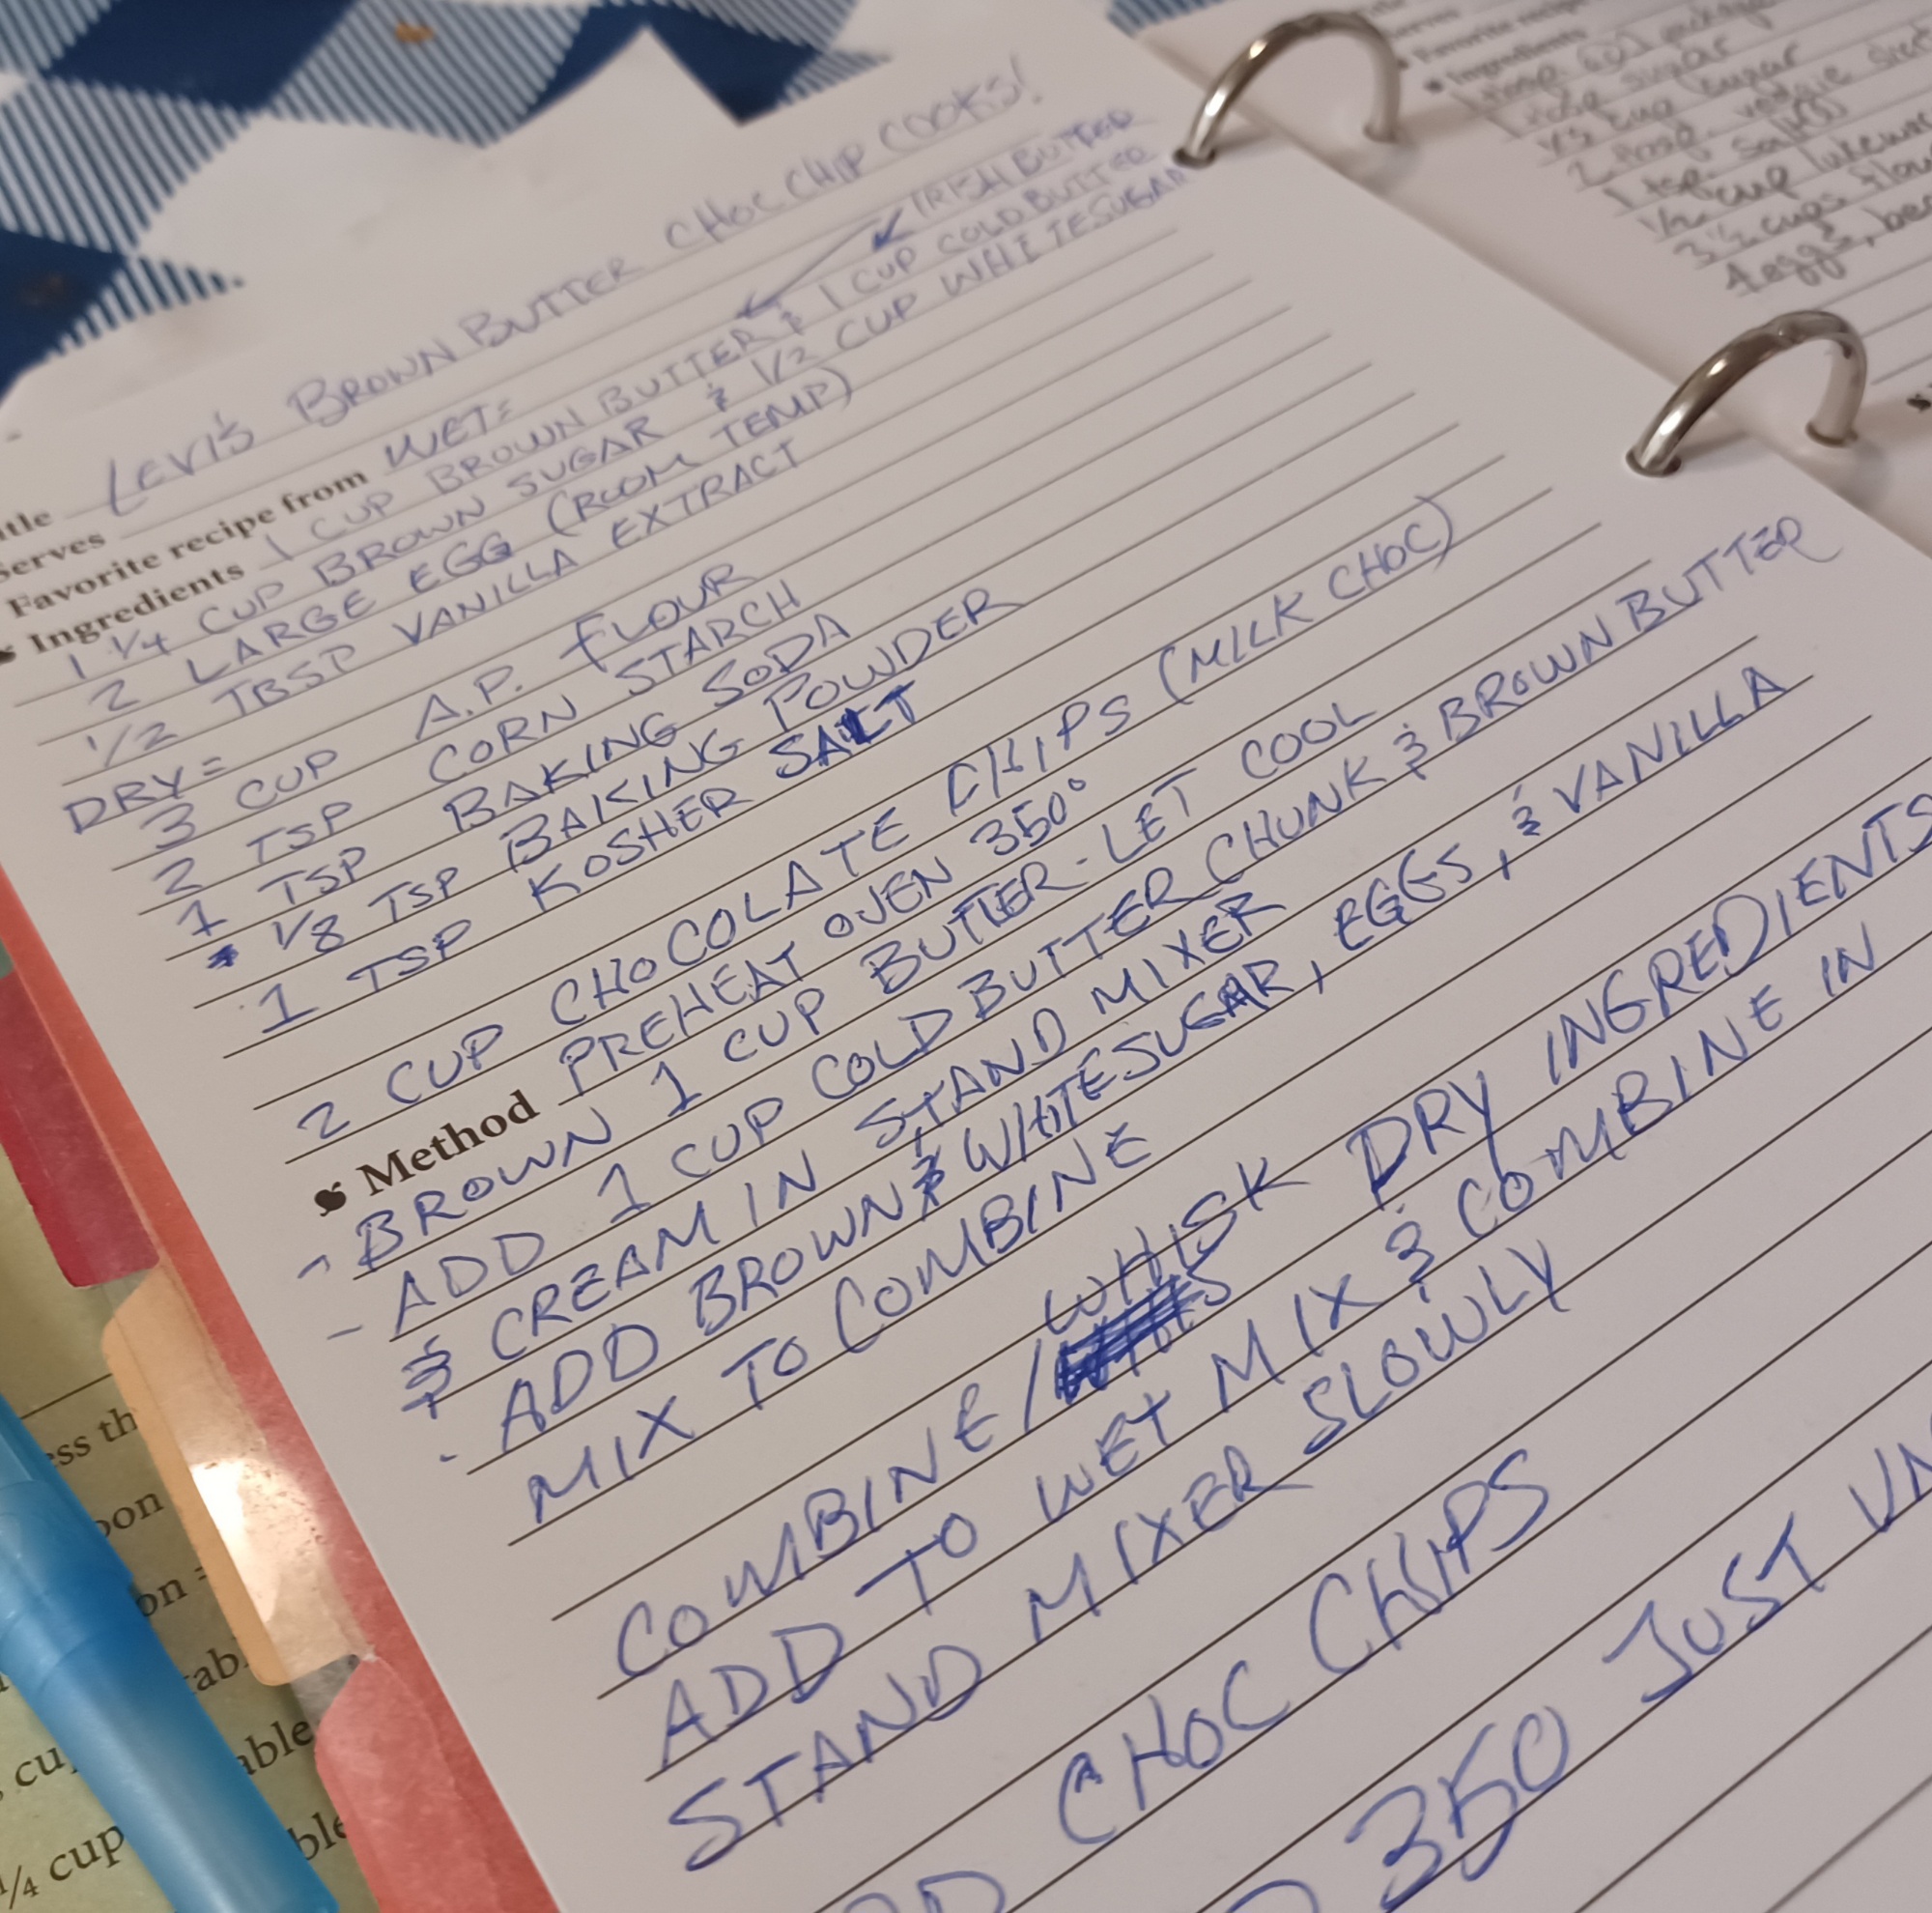 LEVI'S BROWN BUTTER CHOC CHIP COOKS!
Serves
Favorite recipe from WET: IRISH BUTTER
Ingredients 1 CUP BROWN BUTTER & 1 CUP COLD BUTTER
1 1/4 CUP BROWN SUGAR & 1/2 CUP WHITE SUGAR
2 LARGE EGG (ROOM TEMP)
1/2 TBSP VANILLA EXTRACT
DRY=
3 CUP A.P. FLOUR
2 TSP CORN STARCH
1 TSP BAKING SODA
1/8 TSP BAKING POWDER
1 TSP KOSHER SALT
2 CUP CHOCOLATE CHIPS (MILK CHOC)
Method PREHEAT OVEN 350°
- BROWN 1 CUP BUTTER - LET COOL
- ADD 1 CUP COLD BUTTER CHUNK & BROWN BUTTER
& CREAM IN STAND MIXER
- ADD BROWN & WHITE SUGAR, EGGS, & VANILLA
MIX TO COMBINE
COMBINE/WHISK DRY INGREDIENTS
ADD TO WET MIX & COMBINE IN
STAND MIXER SLOWLY
CHOC CHIPS
350 JUST
Ingredients
1/3 cup sugar
1 tsp. salt
1/2 cup
3 1/2 cups
4 eggs,
1/4 cup